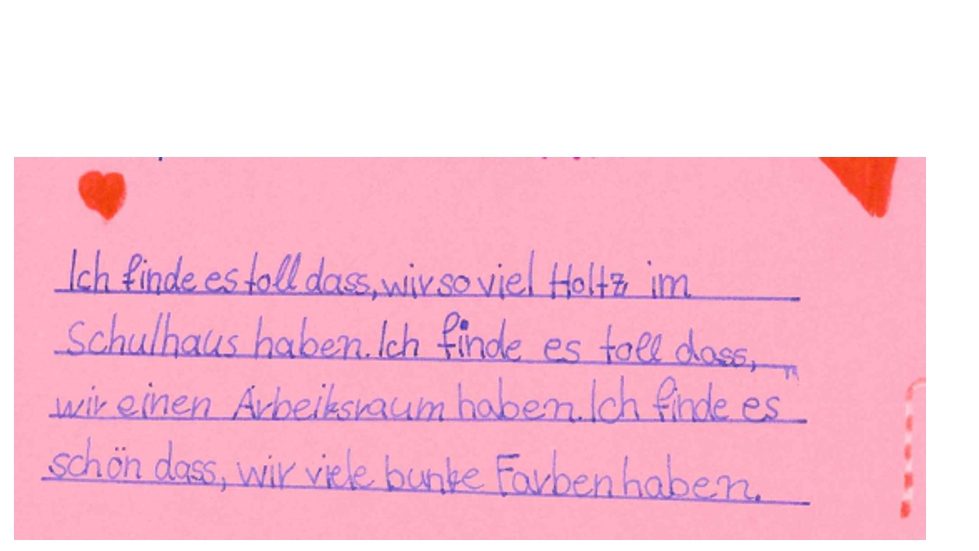 Ich finde es toll dass, wir so viel Holtz im
Schulhaus haben. Ich finde es toll dass,
wir einen Arbeitsraum haben. Ich finde es
schön dass, wir viele bunte Farben haben.